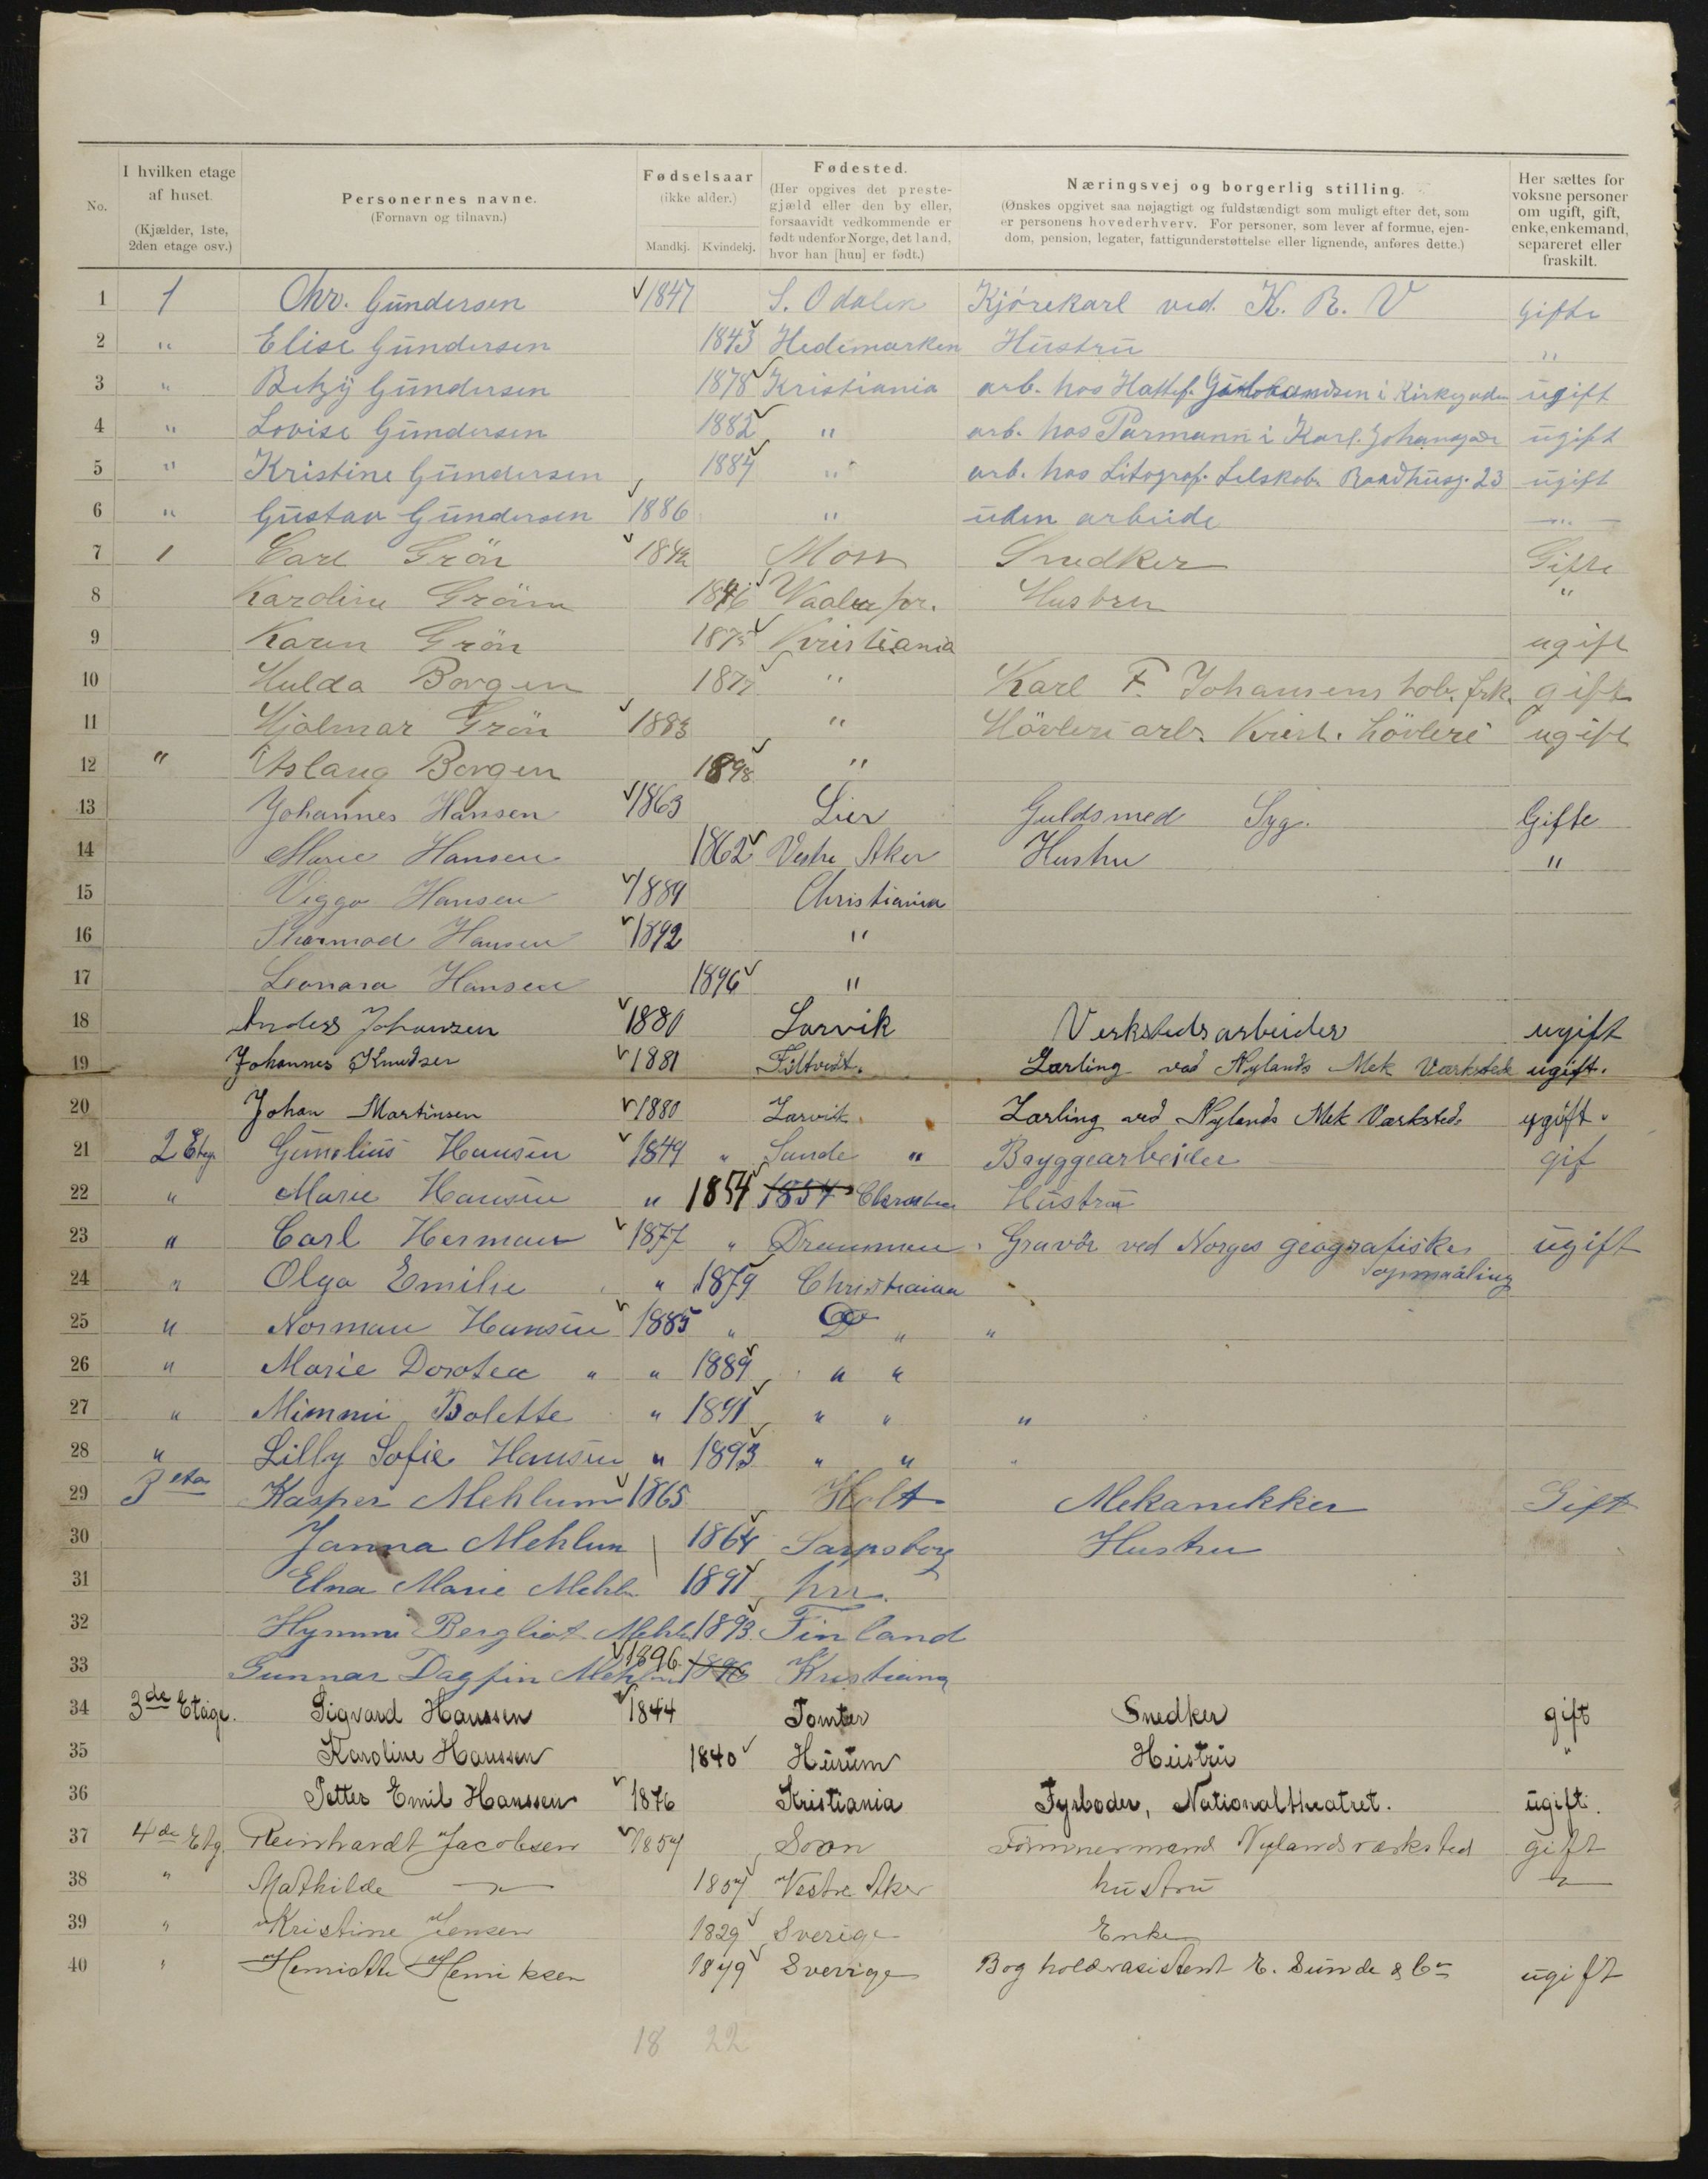 No.
I hvilken etage af huset.
(Kjælder, 1ste, 2den etage osv.)
Personernes navne.
(Fornavn og tilnavn.)
Fødselsaar
(ikke alder.)
Mandkj. Kvindekj.
Fødested.
(Her opgives det prestegjæld eller den by eller, forsaavidt vedkommende er født udenfor Norge, det land, hvor han [hun] er født.)
Næringsvej og borgerlig stilling.
(Ønskes opgivet saa nøjagtigt og fuldstændigt som muligt efter det, som er personens hovederhverv. For personer, som lever af formue, ejendom, pension, legater, fattigunderstøttelse eller lignende, anføres dette.)
Her sættes for voksne personer om ugift, gift, enke, enkemand, separeret eller fraskilt.
1 1 Chr. Gundersen 1847 S. Odalen Kjörekarl ved. K. R. V Gifte
2 " Elise Gundersen 1843 Hedemarken Hustru "
3 " Betzÿ Gundersen 1878 Kristiania arb. hos Hattef. i Kirkegaden ugift
4 " Lovise Gundersen 1882 " arb. hos Parmann i Karl. Johansgade ugift
5 " Kristine Gundersen 1884 " arb. hos Litograf. Selskab. Raadhusg. 23 ugift
6 " Gustav Gundersen 1886 " uden arbeide "
7 1 Carl Grön Moss Snedker Gifte
8 Karoline Grön 1846 Vaaler pr. Hustru "
9 Karen Grön 1875 Kristiania ugift
10 Hulda Borgen 1877 " Karl F. Johansens tob. frk. gift
11 Hjalmar Grön 1883 " Hövleri arb. Krist. Hövleri ugift
12 " Aslaug Borgen 1898 "
13 Johannes Hansen 1863 Lier Guldsmed Syg. Gifte
14 Marie Hansen 1862 Vestre Aker Hustru "
15 Viggo Hansen 1889 Christiania
16 Thormod Hansen 1892 "
17 Leonara Hansen 1896 "
18 Anders Johansen 1880 Larvik Verkstedsarbeider ugift
19 Johannes Knudsen 1881 Filtvedt. Lærling ved Nylands Mek Værksted ugift.
20 Johan Martinsen 1880 Larvik Lærling ved Nylands Mek Værksted. ugift.
21 2 Etg. Gunelius Hansen 1849 " Sande " Bryggearbeider gif
22 " Marie Hansen " 1854 1854 Christiania Hustru
23 " Carl Herman 1877 " Drammen Gravör ved Norges geografiske opmaaling ugift
24 " Olga Emilie " 1879 Christiania
25 " Norman Hansen 1885 " Do " "
26 " Marie Dorotea " " 1889 " "
27 " Mimmi Bolette " 1891 " " "
28 " Lilly Sofie Hansen " 1893 " " "
29 3 eta Kasper Mehlum 1865 Holt Mekanikker Gift
30 Janna Mehlum 1864 Sarpsborg Hustru
31 Elna Marie Mehlm 1891
32 Hymmi Bergliot Mehl 1893 Finland
33 Gunnar Dagfin Mehlum 1896 1896 Kristiania
34 3de Etage. Sigvard Hanssen 1844 Tomter Snedker gift
35 Karoline Hanssen 1840 Hurum Hustru "
36 Petter Emil Hanssen 1876 Kristiania Fyrböder, Nationaltheatret. ugift.
37 4de Etg Reinhardt Jacobsen 1854 Soon Tømmermand Nylandsværksted gift
38 " Mathilde —"— 1857 Vestre Aker hustru —"—
39 " Kristine Jensen 1829 Sverige Enke
40 " Henriette Henriksen 1849 Sverige Bogholderasistent E. Sunde & Co ugift
18 22